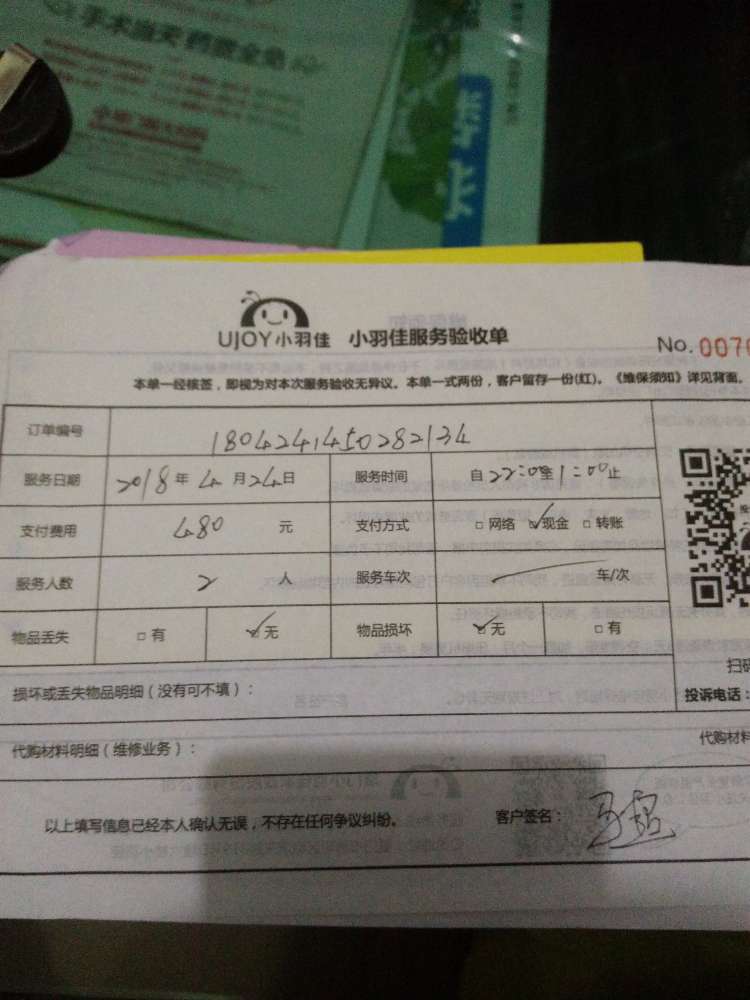 手术当天 药费全免
UJOY小羽佳 小羽佳服务验收单
No. 0070
本单一经核签，即视为对本次服务验收无异议。本单一式两份，客户留存一份(红)。《维保须知》详见背面。
订单编号 1804241450282134
服务日期 2018年4月24日 服务时间 自22:00至1:00止
支付费用 480 元 支付方式 □网络 ☑现金 □转账
服务人数 2 人 服务车次 车/次
物品丢失 □有 ☑无 物品损坏 ☑无 □有
扫码
损坏或丢失物品明细（没有可不填）：
投诉电话：
代购材料明细（维修业务）： 代购材料
以上填写信息已经本人确认无误，不存在任何争议纠纷。 客户签名：